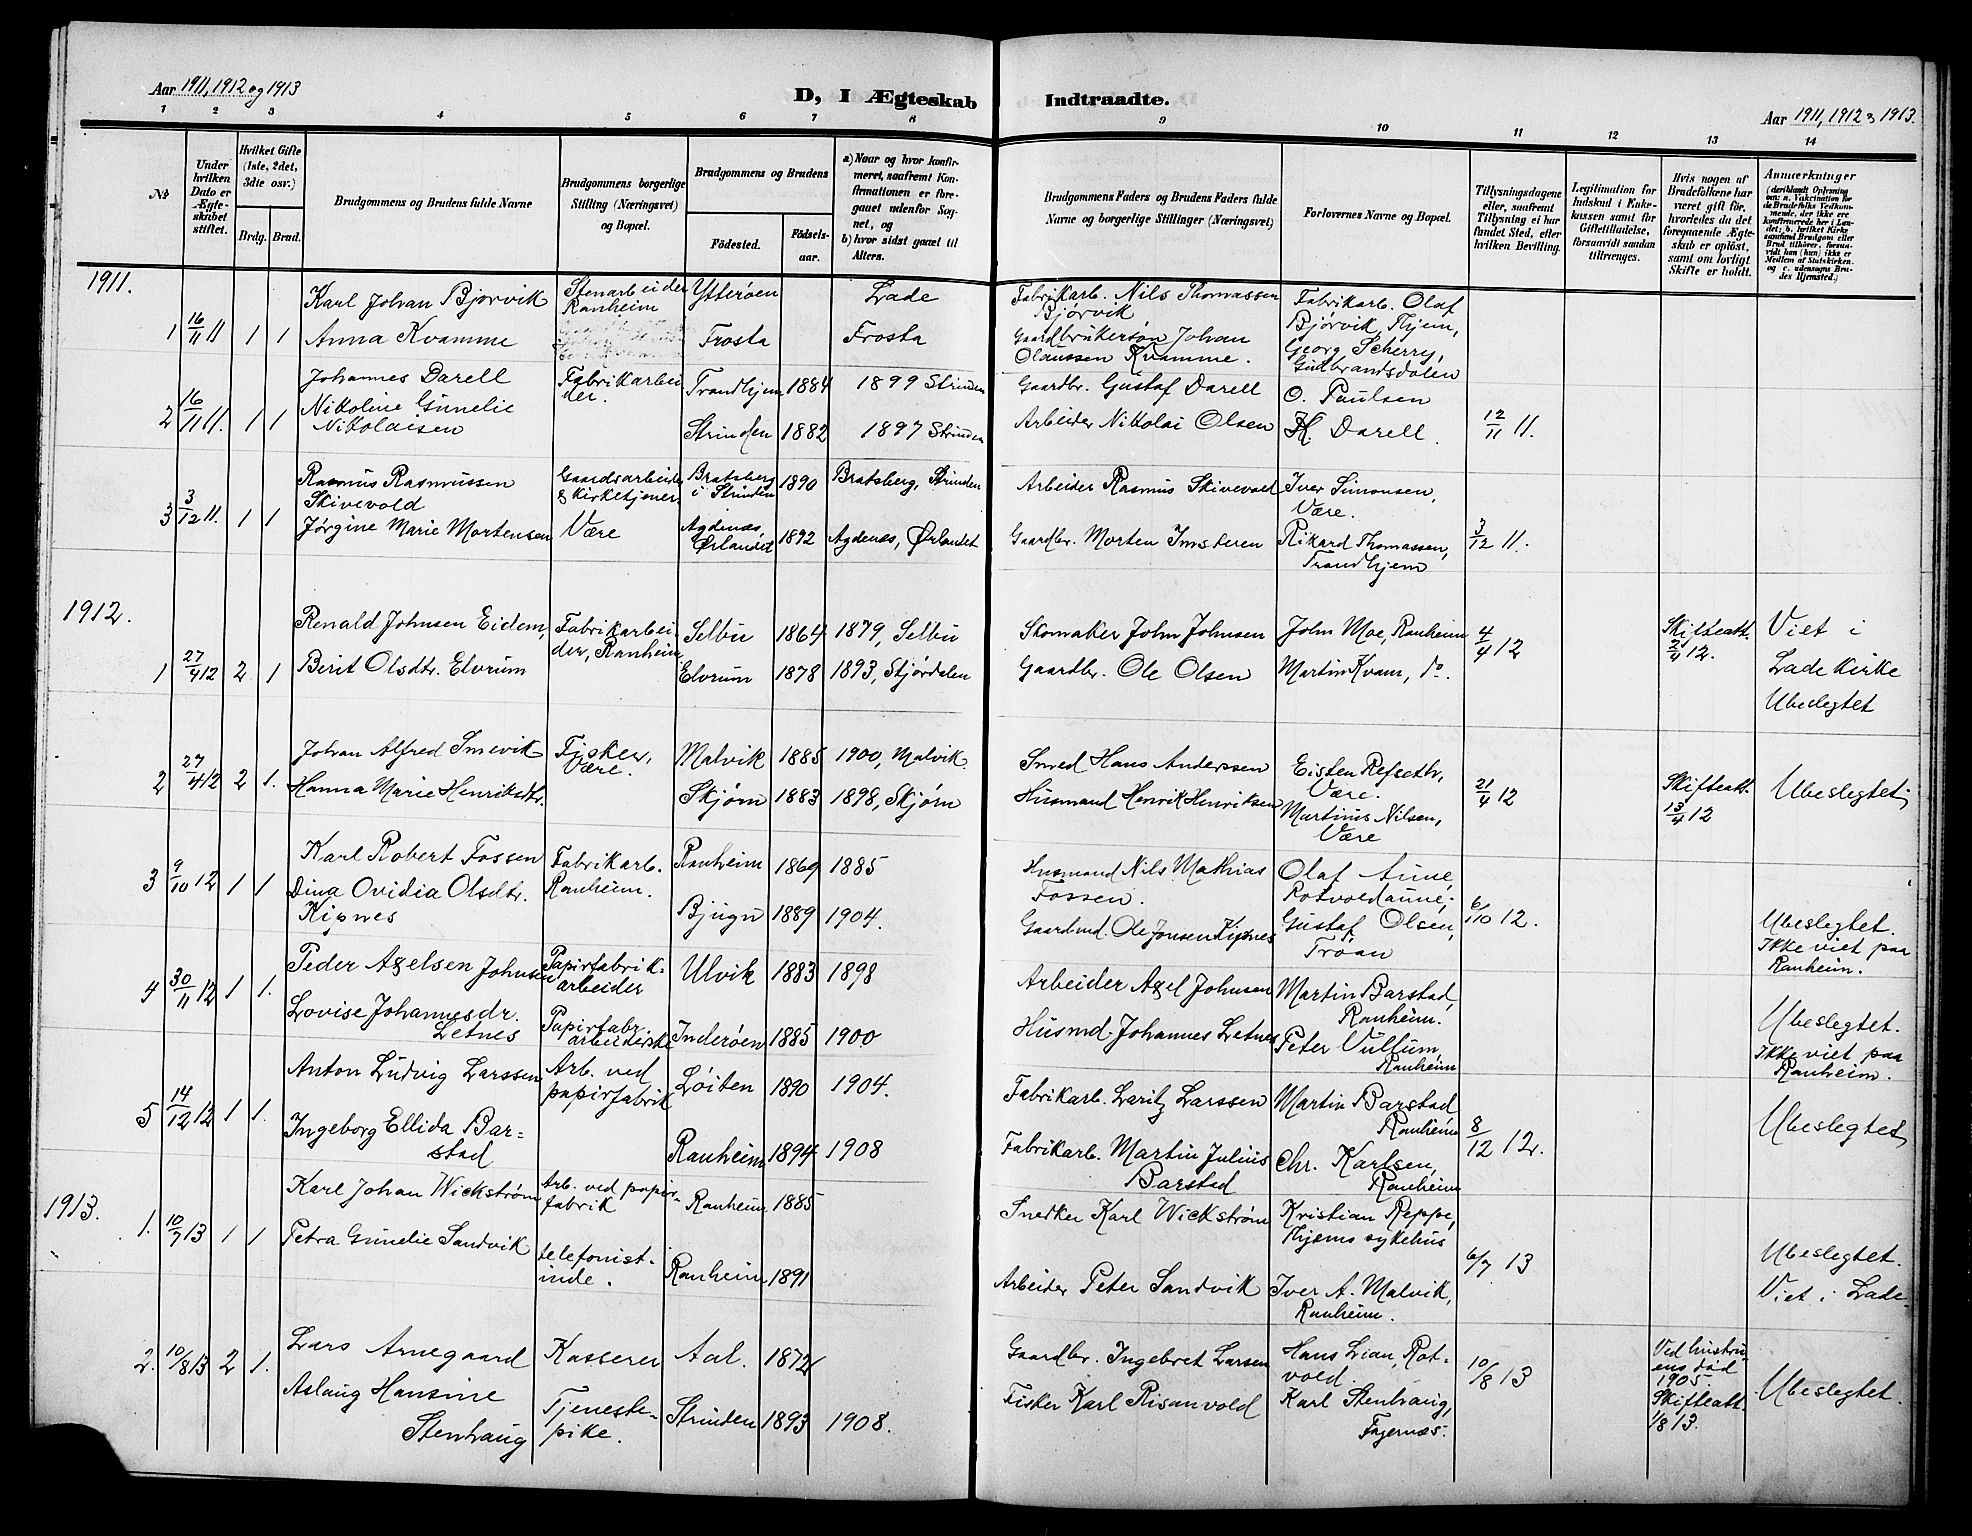 Aar 1911, 1912 og 1913
D, I Ægteskab Indtraadte.
Aar 1911, 1912 & 1913.
1 2 3 4 5 6 7 8 9 10 11 12 13 14
No
Under hvilken Dato er Ægteskabet stiftet.
Hvilket Gifte (1ste, 2det, 3die osv.)
Brdg. Brud.
Brudgommens og Brudens fulde Navne
Brudgommens borgerlige Stilling (Næringsvei) og Bopæl.
Brudgommens og Brudens
Födested.
Födsels-aar.
a) Naar og hvor konfirmeret, saafremt Konfirmationen er foregaaet udenfor Sognet, og
b) hvor sidst gaaet til Alters.
Brudgommens Faders og Brudens Faders fulde Navne og borgerlige Stillinger (Næringsvei)
Forlovernes Navne og Bopæl.
Tillysningsdagene eller, saafremt Tillysning ei har fundet Sted, efter hvilken Bevilling.
Legitimation for Indskud i Enkekassen samt for Giftetilladelse, forsaavidt saadan tiltrænges.
Hvis nogen af Brudefolkene har været gift för, hvorledes du det foregaaende Ægteskab er oplöst, samt om lovligt Skifte er holdt.
Anmærkninger
1911.
1 16/11 11 1 1
Karl Johan Bjørvik
Stenarbeider Ranheim
Ytterøen
Lade
Fabrikarb. Nils Thomassen Bjørvik
Fabrikarb. Olaf Bjørvik, Thjem,
Anna Kvamme
Frosta
Frosta
Gaardbrukersøn Johan Olaussen Kvamme.
Georg Scherry, Gudbrandsdalen
2 16/11 11. 1 1
Johannes Darell
Fabrikarbeider.
Trondhjem 1884
1899 Strinden
Gaardbr. Gustaf Darell
O. Paulsen
Nikoline Gunelie Nikolaisen
Strinden 1882
1897 Strinden
Arbeider Nikolai Olsen
H. Darell.
12/11 11.
3 3/12 11. 1 1
Rasmus Rasmussen Skivevold
Gaardsarbeider & kirketjener
Bratsberg i Strinden 1890
Bratsberg, Strinden
Arbeider Rasmus Skivevold
Iver Simonsen, Være.
Jørgine Marie Mortensen
Være
Agdenæs, Ørlandet 1892
Agdenæs, Ørlandet
Gaardbr. Morten Imsteren
Rikard Thomassen, Trondhjem
3/12 11.
1912.
1 27/4 12 2 1
Renald Johnsen Eidem,
Fabrikarbeider, Ranheim
Selbu 1864
1879, Selbu
Skomaker John Johnsen
John Moe, Ranheim
4/4 12
Skifteatt. 2/4 12.
Viet i Lade kirke
Berit Olsdtr. Elvrum
Elvrum 1878
1893, Stjørdalen
Gaardbr. Ole Olsen
Martin Kvam, do.
Ubeslegtet
2 27/4 12 2 1.
Johan Alfred Smevik
Fisker, Være.
Malvik 1885
1900, Malvik.
Smed Hans Anderssen
Eisten Refseth, Være.
Hanna Marie Henriksdtr.
Skjørn 1883
1898, Skjørn
Husmand Henrik Henriksen
Martinus Nilsen, Være
21/4 12
Skifteatt. 13/4 12
Ubeslegtet
3 9/10 12 1 1
Karl Robert Fossen
Fabrikarb. Ranheim.
Ranheim 1869
1885
Husmand Nils Mathias Fossen.
Olaf Aune, Rotvoldaune;
Dina Ovidia Olsdtr. Kipnes
Bjugn 1889
1904.
Gaardmd. Ole Jonsen Kipnes
Gustaf Olsen, Trøan
6/10 12.
Ubeslegtet.
Ikke viet paa Ranheim.
4 30/11 12 1 1.
Peder Axelsen Johnsen
Papirfabrik-arbeider
Ulvik 1883
1898
Arbeider Axel Johnsen
Martin Barstad, Ranheim.
Lovise Johannesdr. Letnes
Papirfabr. arbeiderske
Inderøen 1885
1900
Husmd. Johannes Letnes
Peter Vullum, Ranheim
Ubeslegtet.
Ikke viet paa Ranheim.
5 14/12 12 1 1.
Anton Ludvig Larssen
Arb. ved papirfabrik
Løiten 1890
1904.
Fabrikarb. Laritz Larssen
Martin Barstad Ranheim
Ingeborg Ellida Barstad
Ranheim 1894
1908
Fabrikarb. Martin Julius Barstad
Chr. Karlsen, Ranheim
8/12 12.
Ubeslegtet
1913.
1. 10/7 13 1 1
Karl Johan Wickstrøm
Arb. ved papirfabrik
Ranheim 1885
Snedker Karl Wickstrøm
Kristian Reppe, Thjems sykehus
Petra Gunelie Sandvik
telefonistinde.
Ranheim 1891
Arbeider Peter Sandvik
Iver A. Malvik, Ranheim.
6/7 13
Ubeslegtet.
Viet i Lade.
2. 10/8 13 2 1.
Lars Arnegaard
Kasserer
Aal. 1872
Gaardbr. Ingebret Larsen
Hans Lian, Rotvold.
10/8 13
Ved hustruens död 1905
Skifteatt. 1/8 13.
Ubeslegtet.
Aslaug Hansine Stenhaug
Tjenestepike.
Strinden 1893
1908.
Fisker Karl Risanvold
Karl Stenhaug, Fagernæs.